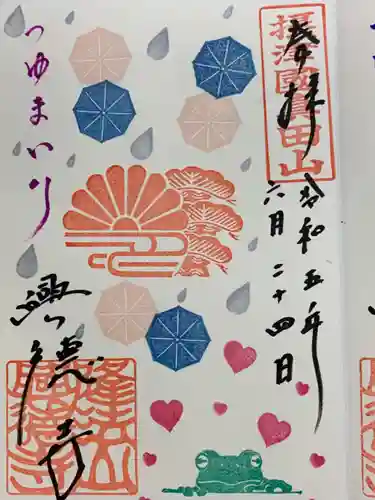 奉拝
摂津國眞田山
令和五年
六月二十四日
つゆまいり
興徳寺